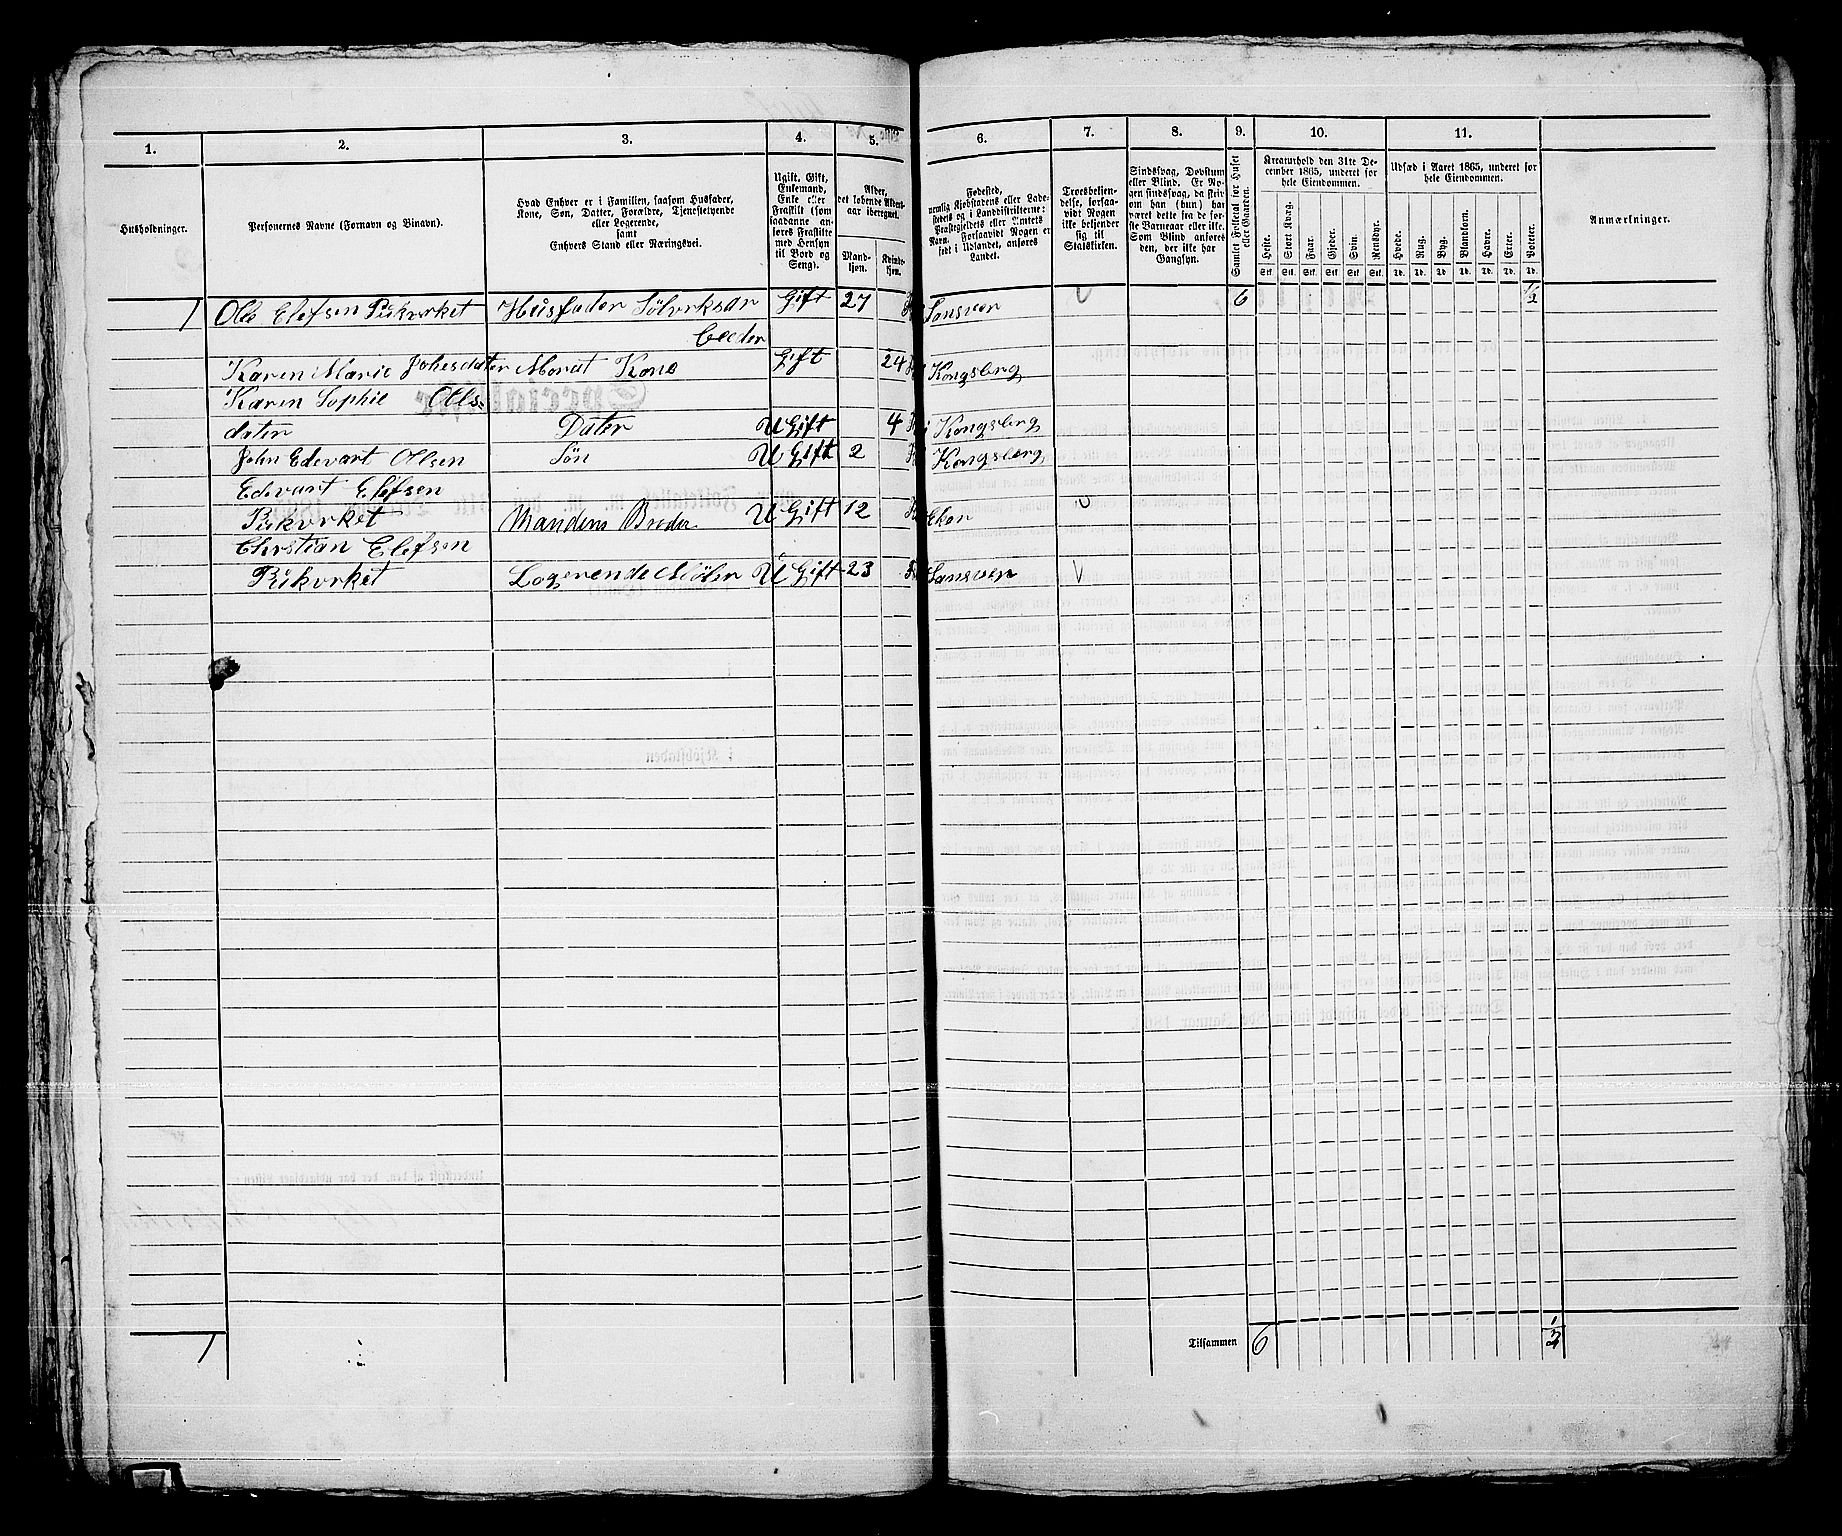 1. 2. 3. 4. 5. 6. 7. 8. 9. 10. 11.
Husholdninger.
Personernes Navne (Fornavn og Binavn).
Hvad Enhver er i Familien, saasom Husfader,
Kone, Søn, Datter, Forældre, Tjenestetyende
eller Logerende,
samt
Enhvers Stand eller Næringsvei.
Ugift, Gift,
Enkemand,
Enke eller
Fraskilt (som
saadanne an-
føres Fraskilte
med Hensyn
til Bord og
Seng).
Alder,
det løbende Alders-
aar iberegnet.
Mand-
kjøn.
Kvinde-
kjøn.
Fødested,
nemlig Kjøbstadens eller Lade-
stedets og i Landdistrikterne:
Præstegjeldets eller Amtets
Navn. Forsaavidt Nogen er
født i Udlandet, anføres
Landet.
Troesbekjen-
delse, forsaa-
vidt Nogen
ikke bekjender
sig til
Statskirken.
Sindssvag, Døvstum
eller Blind. Er No-
gen sindssvag, da skri-
ves om han (hun) har
været dette fra de før-
ste Barneaar eller ikke.
Som Blind anføres
den, der ikke har
Gangsyn.
Samlet Folketal for Huset
eller Gaarden.
Kreaturhold den 31te De-
cember 1865, underet for
hele Eiendommen.
Heste. Stort Kvæg. Faar. Gjeder. Svin. Rensdyr.
Stk. Stk. Stk. Stk. Stk. Stk.
Udsæd i Aaret 1865, underet for
hele Eiendommen.
Hvede. Rug. Byg. Blandkorn. Havre. Erter. Poteter.
Td. Td. Td. Td. Td. Td. Td.
Anmærkninger.
1 Olle Elefsen Pükverket Hüsfader Sölverksar Gift 27 Sansver 6 1/2
beder
Karen Marie Johesdater Morut Kone Gift 24 Kongsberg
Karen Sophie Olls-
dater Dater U Gift 4 Kongsberg
John Edevart Ollsen Søn U Gift 2 Kongsberg
Edevart Elefsen
Pükverket Mandens Broder U Gift 12 Eker
Christian Elefsen
Pükvrket Logerende Møler U Gift 23 Sansver
1 Tilsammen 6 1/2